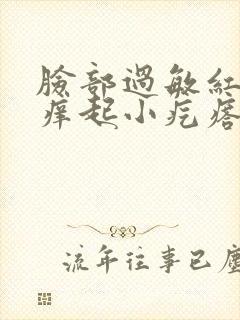 臉部過敏紅
痒起小疙瘩
流年往事已塵